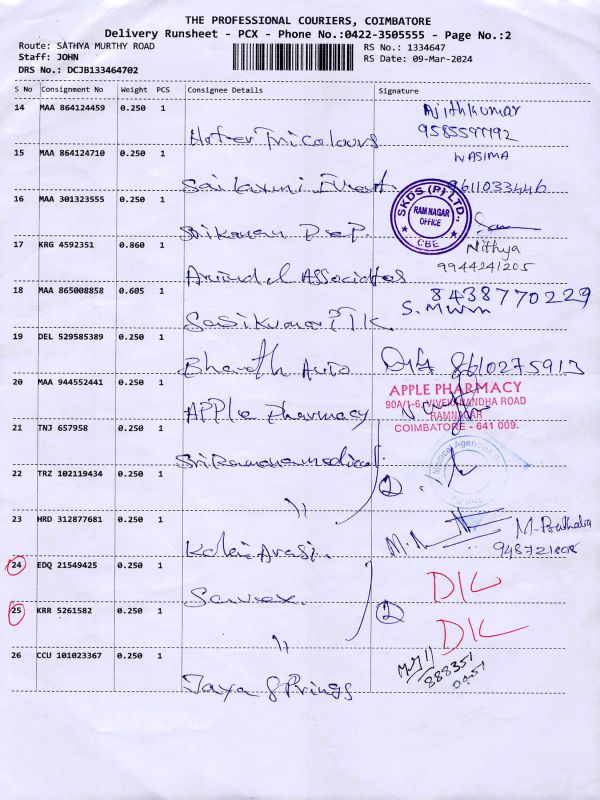 THE PROFESSIONAL COURIERS, COIMBATORE
Delivery Runsheet - PCX - Phone No.:0422-3505555 - Page No.:2
Route: SATHYA MURTHY ROAD
RS No.: 1334647
Staff: JOHN
RS Date: 09-Mar-2024
DRS No.: DCJB133464702
S No Consignment No Weight PCS Consignee Details Signature
14 MAA 864124459 0.250 1 Ajithkumar
Hotel Tricolours
15 MAA 864124710 0.250 1 WASIMA
Sai Laxmi
16 MAA 301323555 0.250 1
SKDS (P) LTD.,
RAM NAGAR
OFFICE
CBE
17 KRG 4592351 0.860 1 Nithya
9944241205
Associates
18 MAA 865008858 0.605 1 8438770229
Sasikumar T.K.
19 DEL 529585389 0.250 1
Bharath Auto 8610275913
20 MAA 944552441 0.250 1
APPLE PHARMACY
90A/1-6, VIVEKANANDHA ROAD
RAMNAGAR
COIMBATORE - 641 009.
Apple Pharmacy
21 TNJ 657958 0.250 1
Medical Agencies
Sri Ramana medical
22 TRZ 102119434 0.250 1 2
"
23 HRD 312877681 0.250 1
Kalai Arasi
24 EDQ 21549425 0.250 1 D/L
Savex
25 KRR 5261582 0.250 1 2 D/L
"
26 CCU 101023367 0.250 1
888351
0451
Jaya Springs